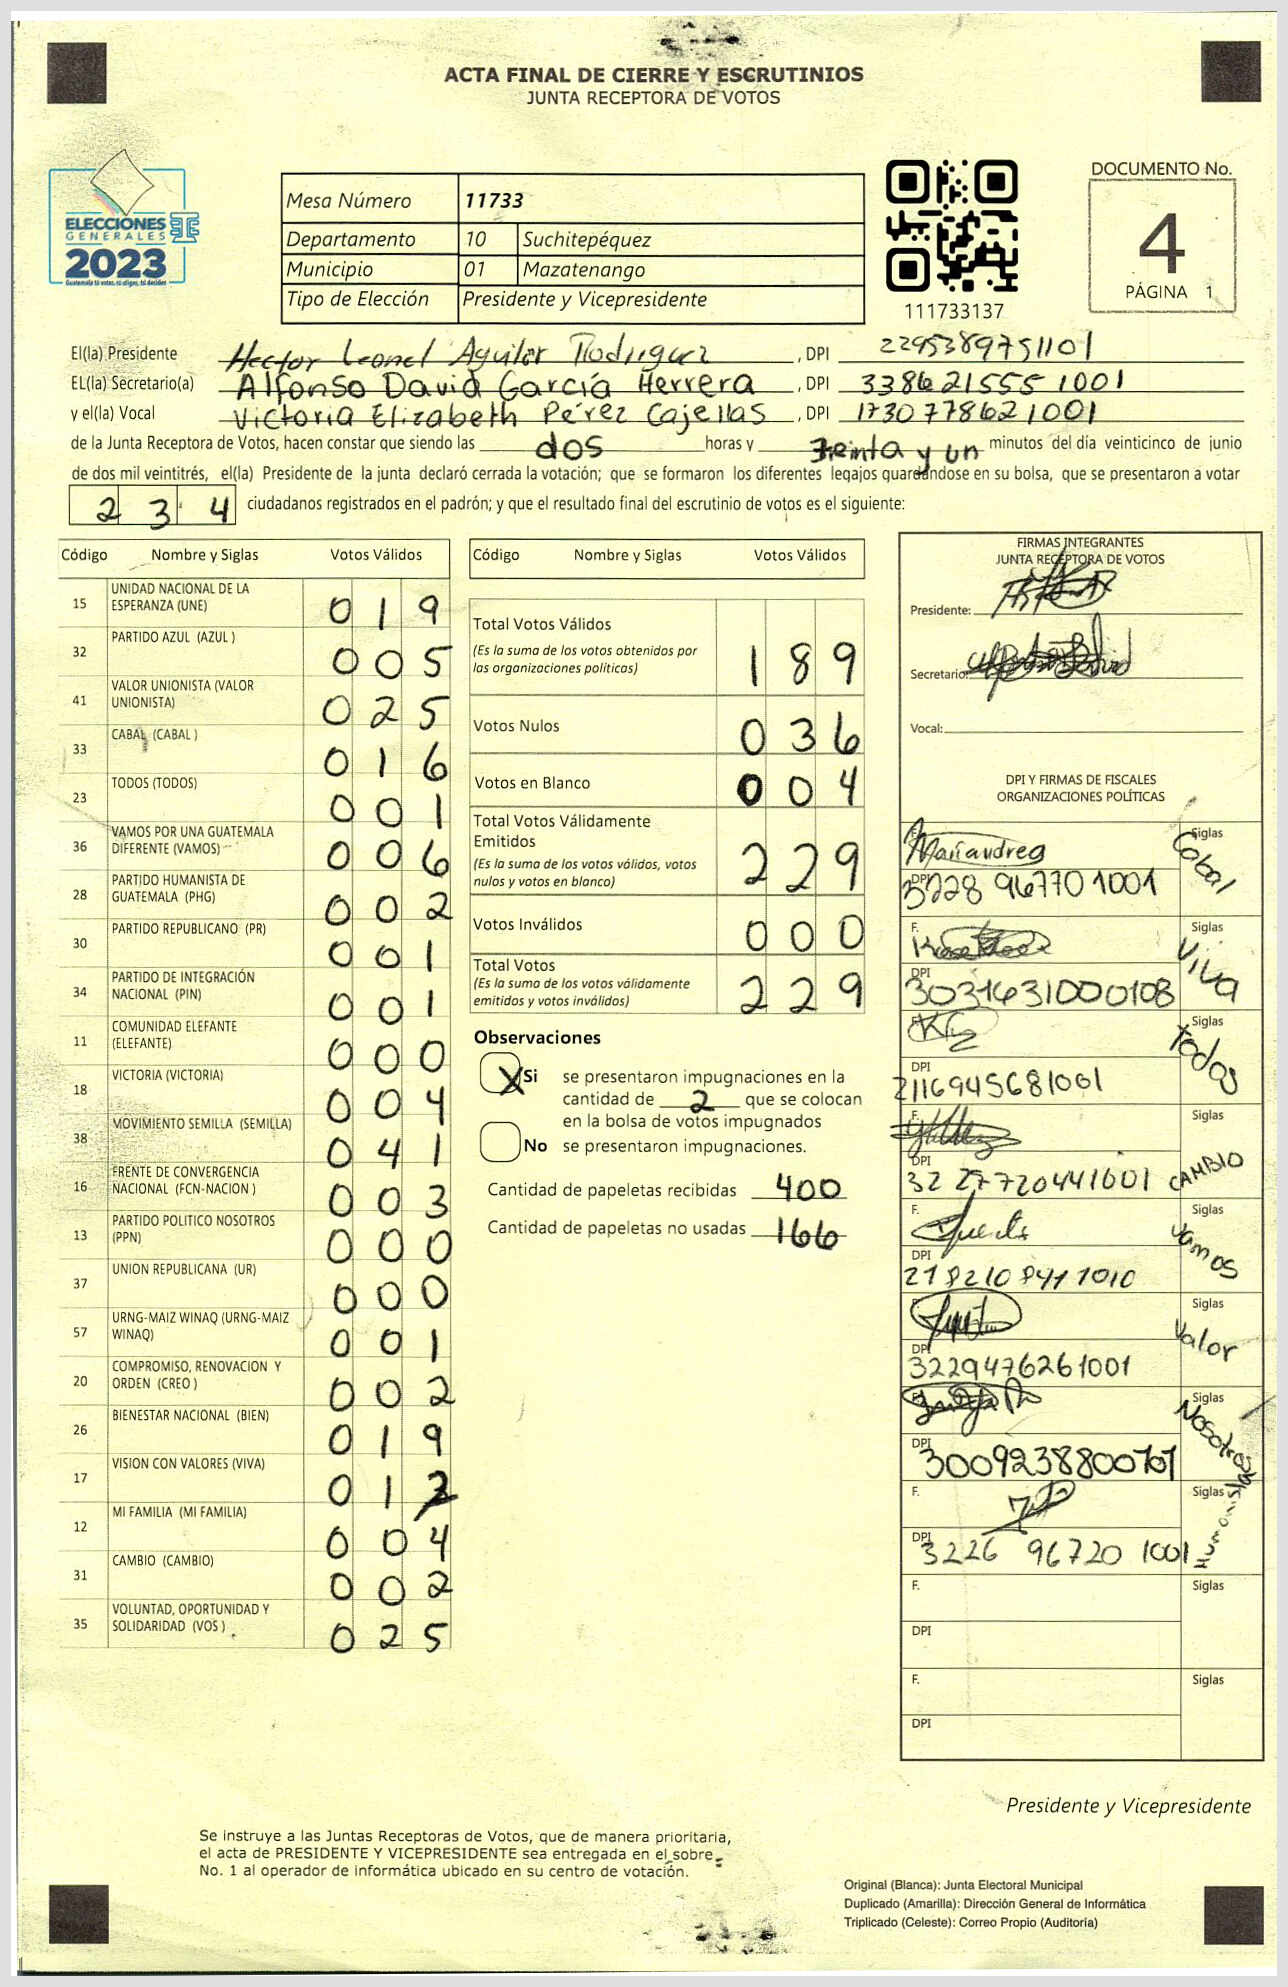 ACTA FINAL DE CIERRE Y ESCRUTINIOS
JUNTA RECEPTORA DE VOTOS
ELECCIONES
GENERALES
2023
Guatemala tú votas, tú eliges, tú decides
Mesa Número 11733
Departamento 10 Suchitepéquez
Municipio 01 Mazatenango
Tipo de Elección Presidente y Vicepresidente
111733137
DOCUMENTO No.
4
PÁGINA 1
El(la) Presidente Hector Leonel Aguilar Rodriguez, DPI 2295389751101
EL(la) Secretario(a) Alfonso David García Herrera, DPI 3386215551001
y el(la) Vocal Victoria Elizabeth Pérez Cajellas, DPI 1730778621001
de la Junta Receptora de Votos, hacen constar que siendo las dos horas y treinta y un minutos del día veinticinco de junio
de dos mil veintitrés, el(la) Presidente de la junta declaró cerrada la votación; que se formaron los diferentes legajos guardándose en su bolsa, que se presentaron a votar
234 ciudadanos registrados en el padrón; y que el resultado final del escrutinio de votos es el siguiente:
Código Nombre y Siglas Votos Válidos
15 UNIDAD NACIONAL DE LA ESPERANZA (UNE) 019
32 PARTIDO AZUL (AZUL ) 005
41 VALOR UNIONISTA (VALOR UNIONISTA) 025
33 CABAL (CABAL ) 016
23 TODOS (TODOS) 001
36 VAMOS POR UNA GUATEMALA DIFERENTE (VAMOS) 006
28 PARTIDO HUMANISTA DE GUATEMALA (PHG) 002
30 PARTIDO REPUBLICANO (PR) 001
34 PARTIDO DE INTEGRACIÓN NACIONAL (PIN) 001
11 COMUNIDAD ELEFANTE (ELEFANTE) 000
18 VICTORIA (VICTORIA) 004
38 MOVIMIENTO SEMILLA (SEMILLA) 041
16 FRENTE DE CONVERGENCIA NACIONAL (FCN-NACION ) 003
13 PARTIDO POLITICO NOSOTROS (PPN) 000
37 UNION REPUBLICANA (UR) 000
57 URNG-MAIZ WINAQ (URNG-MAIZ WINAQ) 001
20 COMPROMISO, RENOVACION Y ORDEN (CREO ) 002
26 BIENESTAR NACIONAL (BIEN) 019
17 VISION CON VALORES (VIVA) 012
12 MI FAMILIA (MI FAMILIA) 004
31 CAMBIO (CAMBIO) 002
35 VOLUNTAD, OPORTUNIDAD Y SOLIDARIDAD (VOS ) 025
Código Nombre y Siglas Votos Válidos
Total Votos Válidos
(Es la suma de los votos obtenidos por
las organizaciones políticas) 189
Votos Nulos 036
Votos en Blanco 004
Total Votos Válidamente
Emitidos
(Es la suma de los votos válidos, votos
nulos y votos en blanco) 229
Votos Inválidos 000
Total Votos
(Es la suma de los votos válidamente
emitidos y votos inválidos) 229
Observaciones
X Si se presentaron impugnaciones en la
cantidad de 2 que se colocan
en la bolsa de votos impugnados
No se presentaron impugnaciones.
Cantidad de papeletas recibidas 400
Cantidad de papeletas no usadas 166
FIRMAS INTEGRANTES
JUNTA RECEPTORA DE VOTOS
Presidente:
Secretario:
Vocal:
DPI Y FIRMAS DE FISCALES
ORGANIZACIONES POLÍTICAS
F. Mariandrea Siglas Cabal
DPI 3228 96770 1001
F. Siglas Viva
DPI 3031631000108
F. Siglas Todos
DPI 2116945681001
F. Siglas CAMBIO
DPI 32 27720441001
F. Siglas Vamos
DPI 2182108411010
F. Siglas Valor
DPI 3229476261001
F. Siglas Nosotros
DPI 3009238800101
F. Siglas Humanista
DPI 3226 96720 1001
F. Siglas
DPI
F. Siglas
DPI
Presidente y Vicepresidente
Se instruye a las Juntas Receptoras de Votos, que de manera prioritaria,
el acta de PRESIDENTE Y VICEPRESIDENTE sea entregada en el sobre
No. 1 al operador de informática ubicado en su centro de votación.
Original (Blanca): Junta Electoral Municipal
Duplicado (Amarilla): Dirección General de Informática
Triplicado (Celeste): Correo Propio (Auditoría)